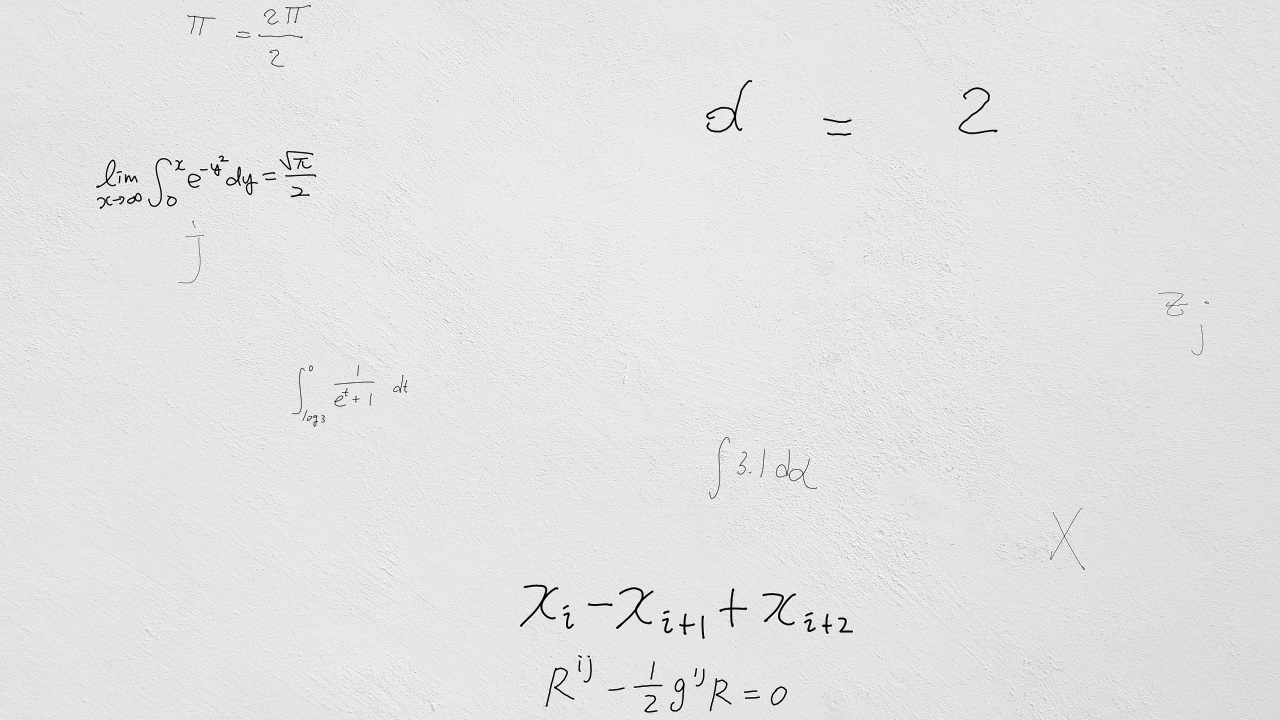 π = 2π/2
d = 2
lim x→∞ ∫₀ˣ e^{-y²} dy = √π/2
j
z j
∫_{log3}^{0} 1/(e^t + 1) dt
∫ 3.1 dα
X
x_i − x_{i+1} + x_{i+2}
R^{ij} − 1/2 g^{ij} R = 0